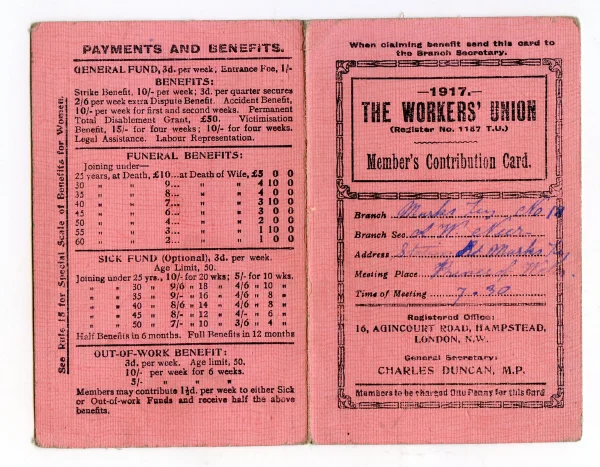 See Rule 15 for Special Scale of Benefits for Women.
PAYMENTS AND BENEFITS.
GENERAL FUND, 3d. per week, Entrance Fee, 1/-
BENEFITS:
Strike Benefit, 10/- per week; 3d. per quarter secures
2/6 per week extra Dispute Benefit. Accident Benefit,
10/- per week for first and second weeks. Permanent
Total Disablement Grant, £50. Victimisation
Benefit, 15/- for four weeks; 10/- for four weeks.
Legal Assistance. Labour Representation.
FUNERAL BENEFITS:
Joining under—
25 years, at Death, £10... at Death of Wife, £5 0 0
30 „ „ 9... „ „ 4 10 0
35 „ „ 8... „ „ 4 0 0
40 „ „ 7... „ „ 3 10 0
45 „ „ 6... „ „ 3 0 0
50 „ „ 4... „ „ 2 0 0
55 „ „ 3... „ „ 1 10 0
60 „ „ 2... „ „ 1 0 0
SICK FUND (Optional), 3d. per week.
Age Limit, 50.
Joining under 25 yrs., 10/- for 20 wks; 5/- for 10 wks.
„ „ 30 „ 9/6 „ 18 „ 4/6 „ 10 „
„ „ 35 „ 9/- „ 16 „ 4/6 „ 8 „
„ „ 40 „ 8/6 „ 14 „ 4/6 „ 8 „
„ „ 45 „ 8/- „ 12 „ 4/- „ 6 „
„ „ 50 „ 7/- „ 10 „ 3/6 „ 4 „
Half Benefits in 6 months. Full Benefits in 12 months
OUT-OF-WORK BENEFIT:
3d. per week. Age limit, 50.
10/- per week for 6 weeks.
5/- „ „ „
Members may contribute 1½d. per week to either Sick
or Out-of-work Funds and receive half the above
benefits.
When claiming benefit send this card to
the Branch Secretary.
—1917.—
THE WORKERS' UNION
(Register No. 1187 T.U.)
Member's Contribution Card.
Branch Marks Tey No
Branch Sec. W
Address Marks Tey
Meeting Place
Time of Meeting 7.30
Registered Office:
16, AGINCOURT ROAD, HAMPSTEAD,
LONDON, N.W.
General Secretary:
CHARLES DUNCAN, M.P.
Members to be charged One Penny for this Card